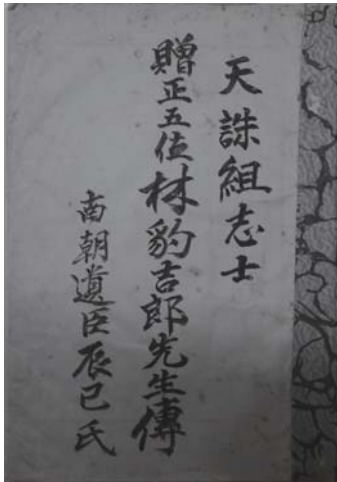 天誅組志士
贈正五位林豹吉郎先生傳
南朝遺臣辰已氏